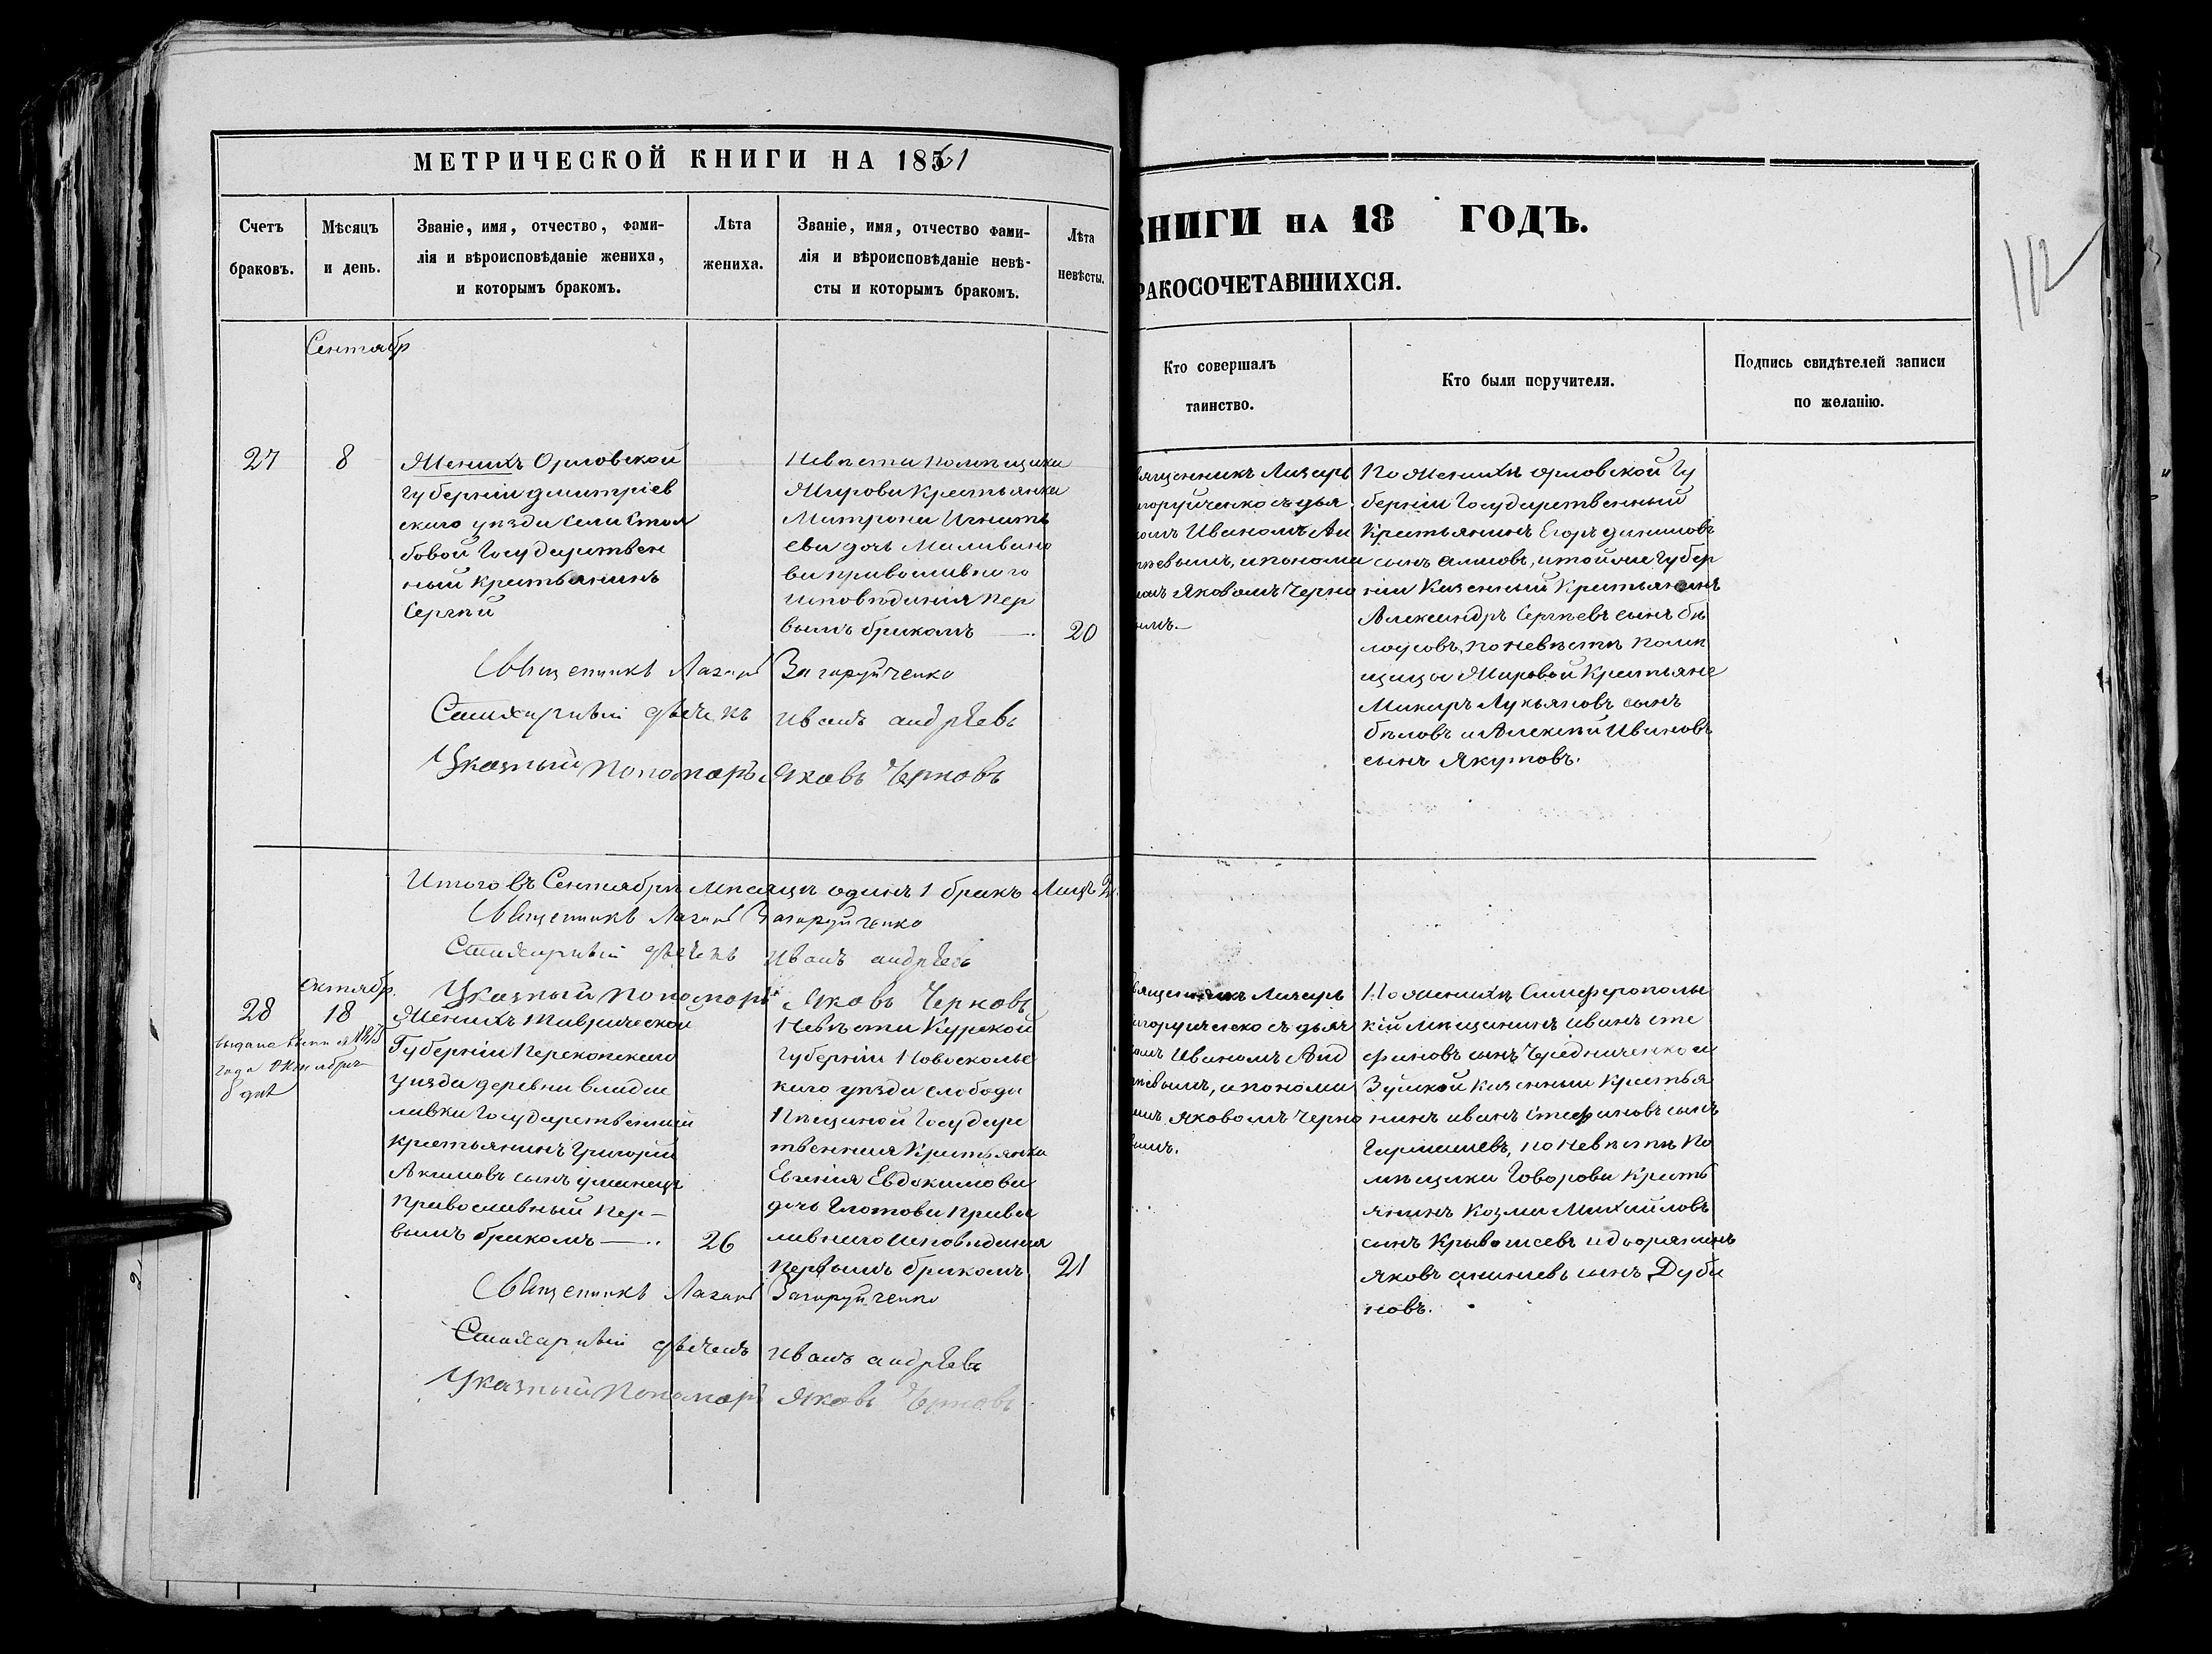 МЕТРИЧЕСКОЙ КНИГИ НА 1861
Счетъ
браковъ.
Мѣсяцъ
и день.
Званіе, имя, отчество, фами-
лія и вѣроисповѣданіе жениха,
и которымъ бракомъ.
Лѣта
жениха.
Званіе, имя, отчество фами-
лія и вѣроисповѣданіе невѣ-
сты и которымъ бракомъ.
Лѣта
невѣсты.
Сентябр
27
8
Женихъ Орловской
Губерніи Дмитріев
скаго уѣзда села Стол
бовой Государствен
ный крестьянинъ
Сергѣй
Невѣста помѣщика
Жирова Крестьянка
Матрона Игнатъ
ева дочь Маливано
ва православнаго
исповѣданія пер
вымъ бракомъ —
20
Священникъ Лазарь Загоруйченко
Стихарный дьячекъ Иванъ Андрѣевъ
Указный Пономарь Яковъ Черновъ
Итого въ Сентябрѣ мѣсяцѣ одинъ 1 бракъ Лицъ 2.
Священникъ Лазарь Загоруйченко
Стихарный дьячекъ Иванъ Андрѣевъ
Указный Пономарь Яковъ Черновъ
Октябр.
28
18
года
8 дня
Женихъ Таврической
Губерніи Перекопскаго
уѣзда деревни Владис
лавки Государственный
крестьянинъ Григорій
Акимовъ сынъ Уманецъ
православный пер-
вымъ бракомъ —
26
Невѣста Курской
Губерніи Новосколь
скаго уѣзда слободы
Пѣщаной Государс
твенная Крестьянка
Евгенія Евдокимова
дочь Глотова правос
лавнаго исповѣданія
первымъ бракомъ
21
Священникъ Лазарь Загоруйченко
Стихарный дьячекъ Иванъ Андрѣевъ
Указный Пономарь Яковъ Черновъ
КНИГИ НА 18 ГОДЪ.
РАКОСОЧЕТАВШИХСЯ.
112
Кто совершалъ
таинство.
Кто были поручители.
Подпись свидѣтелей записи
по желанію.
вященникъ Лазарь
агоруйченко съ дья
комъ Иваномъ Ан
рѣевымъ, и понома
емъ Яковомъ Черно
вымъ.—
По Женихѣ Орловской Гу
берніи Государственный
Крестьянинъ Егоръ Данииловъ
сынъ, и той же Губер
ніи Казенный Крестьянинъ
Александръ Сергѣевъ сынъ Бѣ
лоусовъ, по невѣстѣ помѣ
щицы Жировой Крестьяне
Макаръ Лукьяновъ сынъ
Бѣловъ и Алексѣй Ивановъ
сынъ Якуповъ.
вященникъ Лазарь
агоруйченко съ дьяч
комъ Иваномъ Анд
рѣевымъ, и понома
емъ Яковомъ Черно
вымъ.
По женихѣ Симферополь
скій мѣщанинъ Иванъ Сте
фановъ сынъ Чередниченко и
Зуйской казенный Крестья
нинъ Иванъ Стефановъ сынъ
по невѣстѣ По
мѣщика Говорова Кресть
янинъ Козма Михайловъ
сынъ и дворянинъ
Яковъ Ананіевъ сынъ Дуби
новъ.